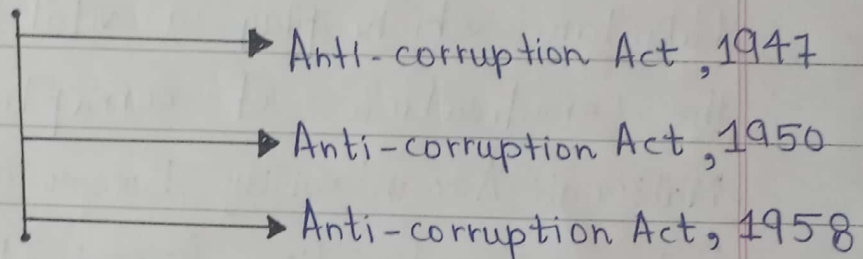 Anti-corruption Act, 1947
Anti-corruption Act, 1950
Anti-corruption Act, 1958